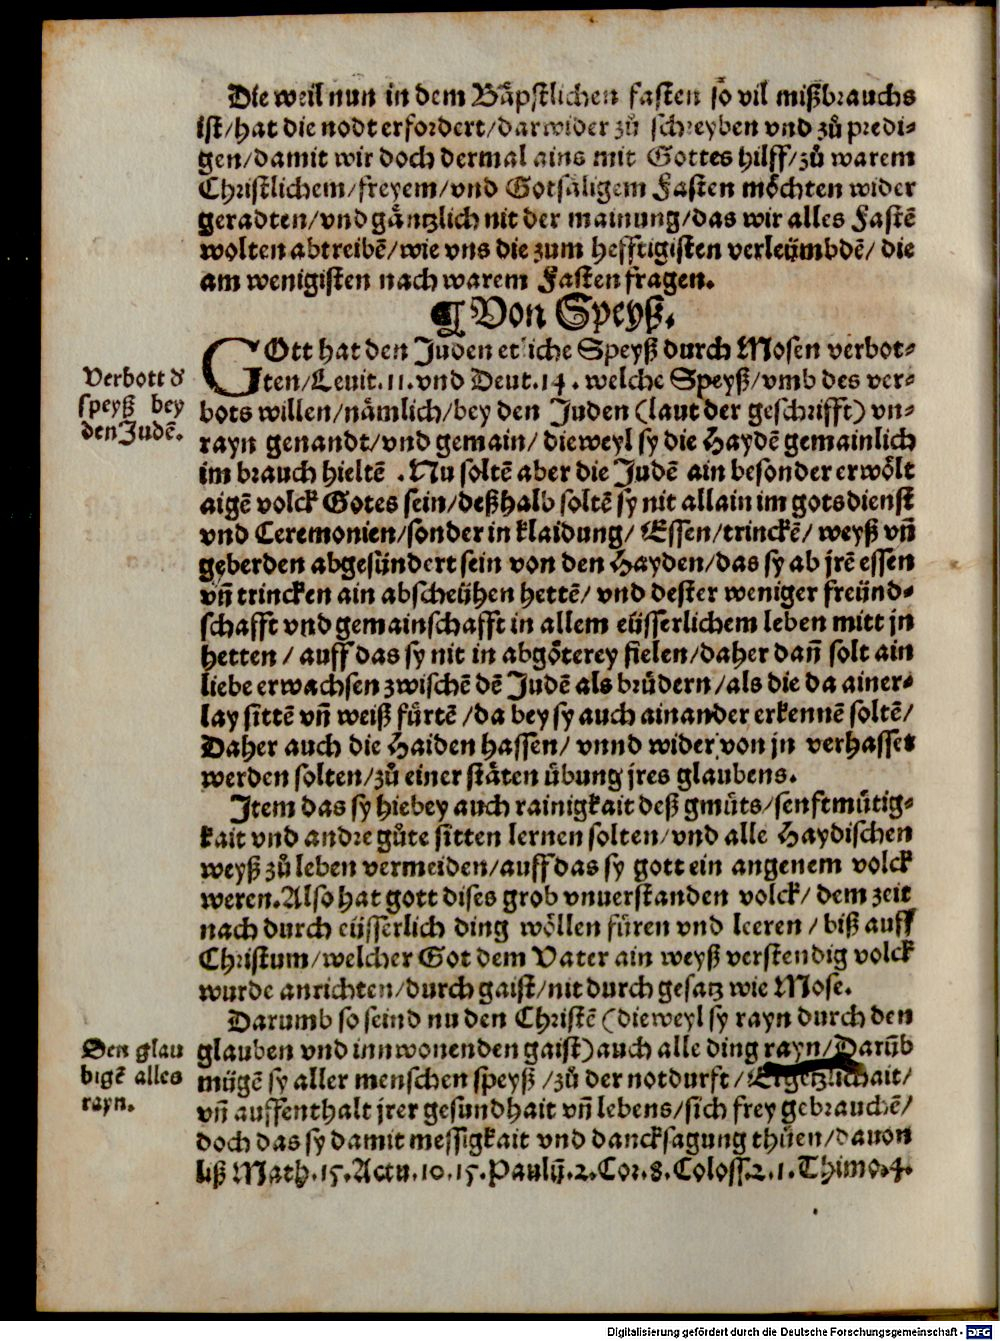 Die weil nun in dem Bäpstlichen fasten so vil mißbrauchs
ist/hat die nodt erfordert/darwider zů schreyben vnd zů predi-
gen/damit wir doch dermal ains mit Gottes hilff/zů warem
Christlichem/freyem/vnd Gotsäligem Fasten möchten wider
geradten/vnd gäntzlich nit der mainung/das wir alles Fastē
wolten abtreibē/wie vns die zum hefftigisten verleümbdē/ die
am wenigisten nach warem Fasten fragen.
¶ Von Speyß.
GOtt hat den Juden etliche Speyß durch Mosen verbot-
Verbott d'
speyß bey
den Judē.
ten/Leuit.11.vnd Deut.14. welche Speyß/vmb des ver-
bots willen/nämlich/bey den Juden (laut der geschrifft) vn-
rayn genandt/vnd gemain/ dieweyl sy die Haydē gemainlich
im brauch hieltē .Nu soltē aber die Judē ain besonder erwölt
aigē volck Gotes sein/deßhalb soltē sy nit allain im gotsdienst
vnd Ceremonien/sonder in klaidung/ Essen/trinckē/ weyß vñ
geberden abgesündert sein von den Hayden/das sy ab jrē essen
vñ trincken ain abscheühen hettē/ vnd dester weniger freünd-
schafft vnd gemainschafft in allem eüsserlichem leben mitt jn
hetten / auff das sy nit in abgöterey fielen/daher dañ solt ain
liebe erwachsen zwischē dē Judē als brüdern/als die da ainer-
lay sittē vñ weiß fürtē /da bey sy auch ainander erkennē soltē/
Daher auch die Haiden hassen/ vnnd wider von jn verhasset
werden solten/zů einer stäten übung jres glaubens.
Item das sy hiebey auch rainigkait deß gmüts/senftmütig-
kait vnd andre gůte sitten lernen solten/vnd alle Haydischen
weyß zů leben vermeiden/auff das sy gott ein angenem volck
weren.Also hat gott dises grob vnuerstanden volck/ dem zeit
nach durch eüsserlich ding wöllen füren vnd leeren / biß auff
Christum/welcher Got dem Vater ain weyß verstendig volck
wurde anrichten/durch gaist/nit durch gesatz wie Mose.
Darumb so seind nu den Christē (dieweyl sy rayn durch den
Den glau
bigē alles
rayn.
glauben vnd innwonenden gaist) auch alle ding rayn/Darūb
mügē sy aller menschen speyß /zů der notdurft / Ergetzlichait/
vñ auffenthalt jrer gesundhait vñ lebens/sich frey gebrauchē/
doch das sy damit messigkait vnd dancksagung thüen/dauon
liß Math.15.Actu.10.15.Paulü.2.Cor.8.Coloss.2.1.Thimo.4.
Digitalisierung gefördert durch die Deutsche Forschungsgemeinschaft - DFG